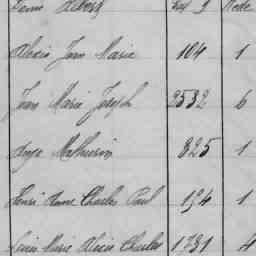 Alexis Jean Marie 104 1
Jean Marie Joseph 2532 6
Ange Mathurin 825 1
Henri Anne Charles Paul 194 1
Louis Marie Alexis Charles 1731 4